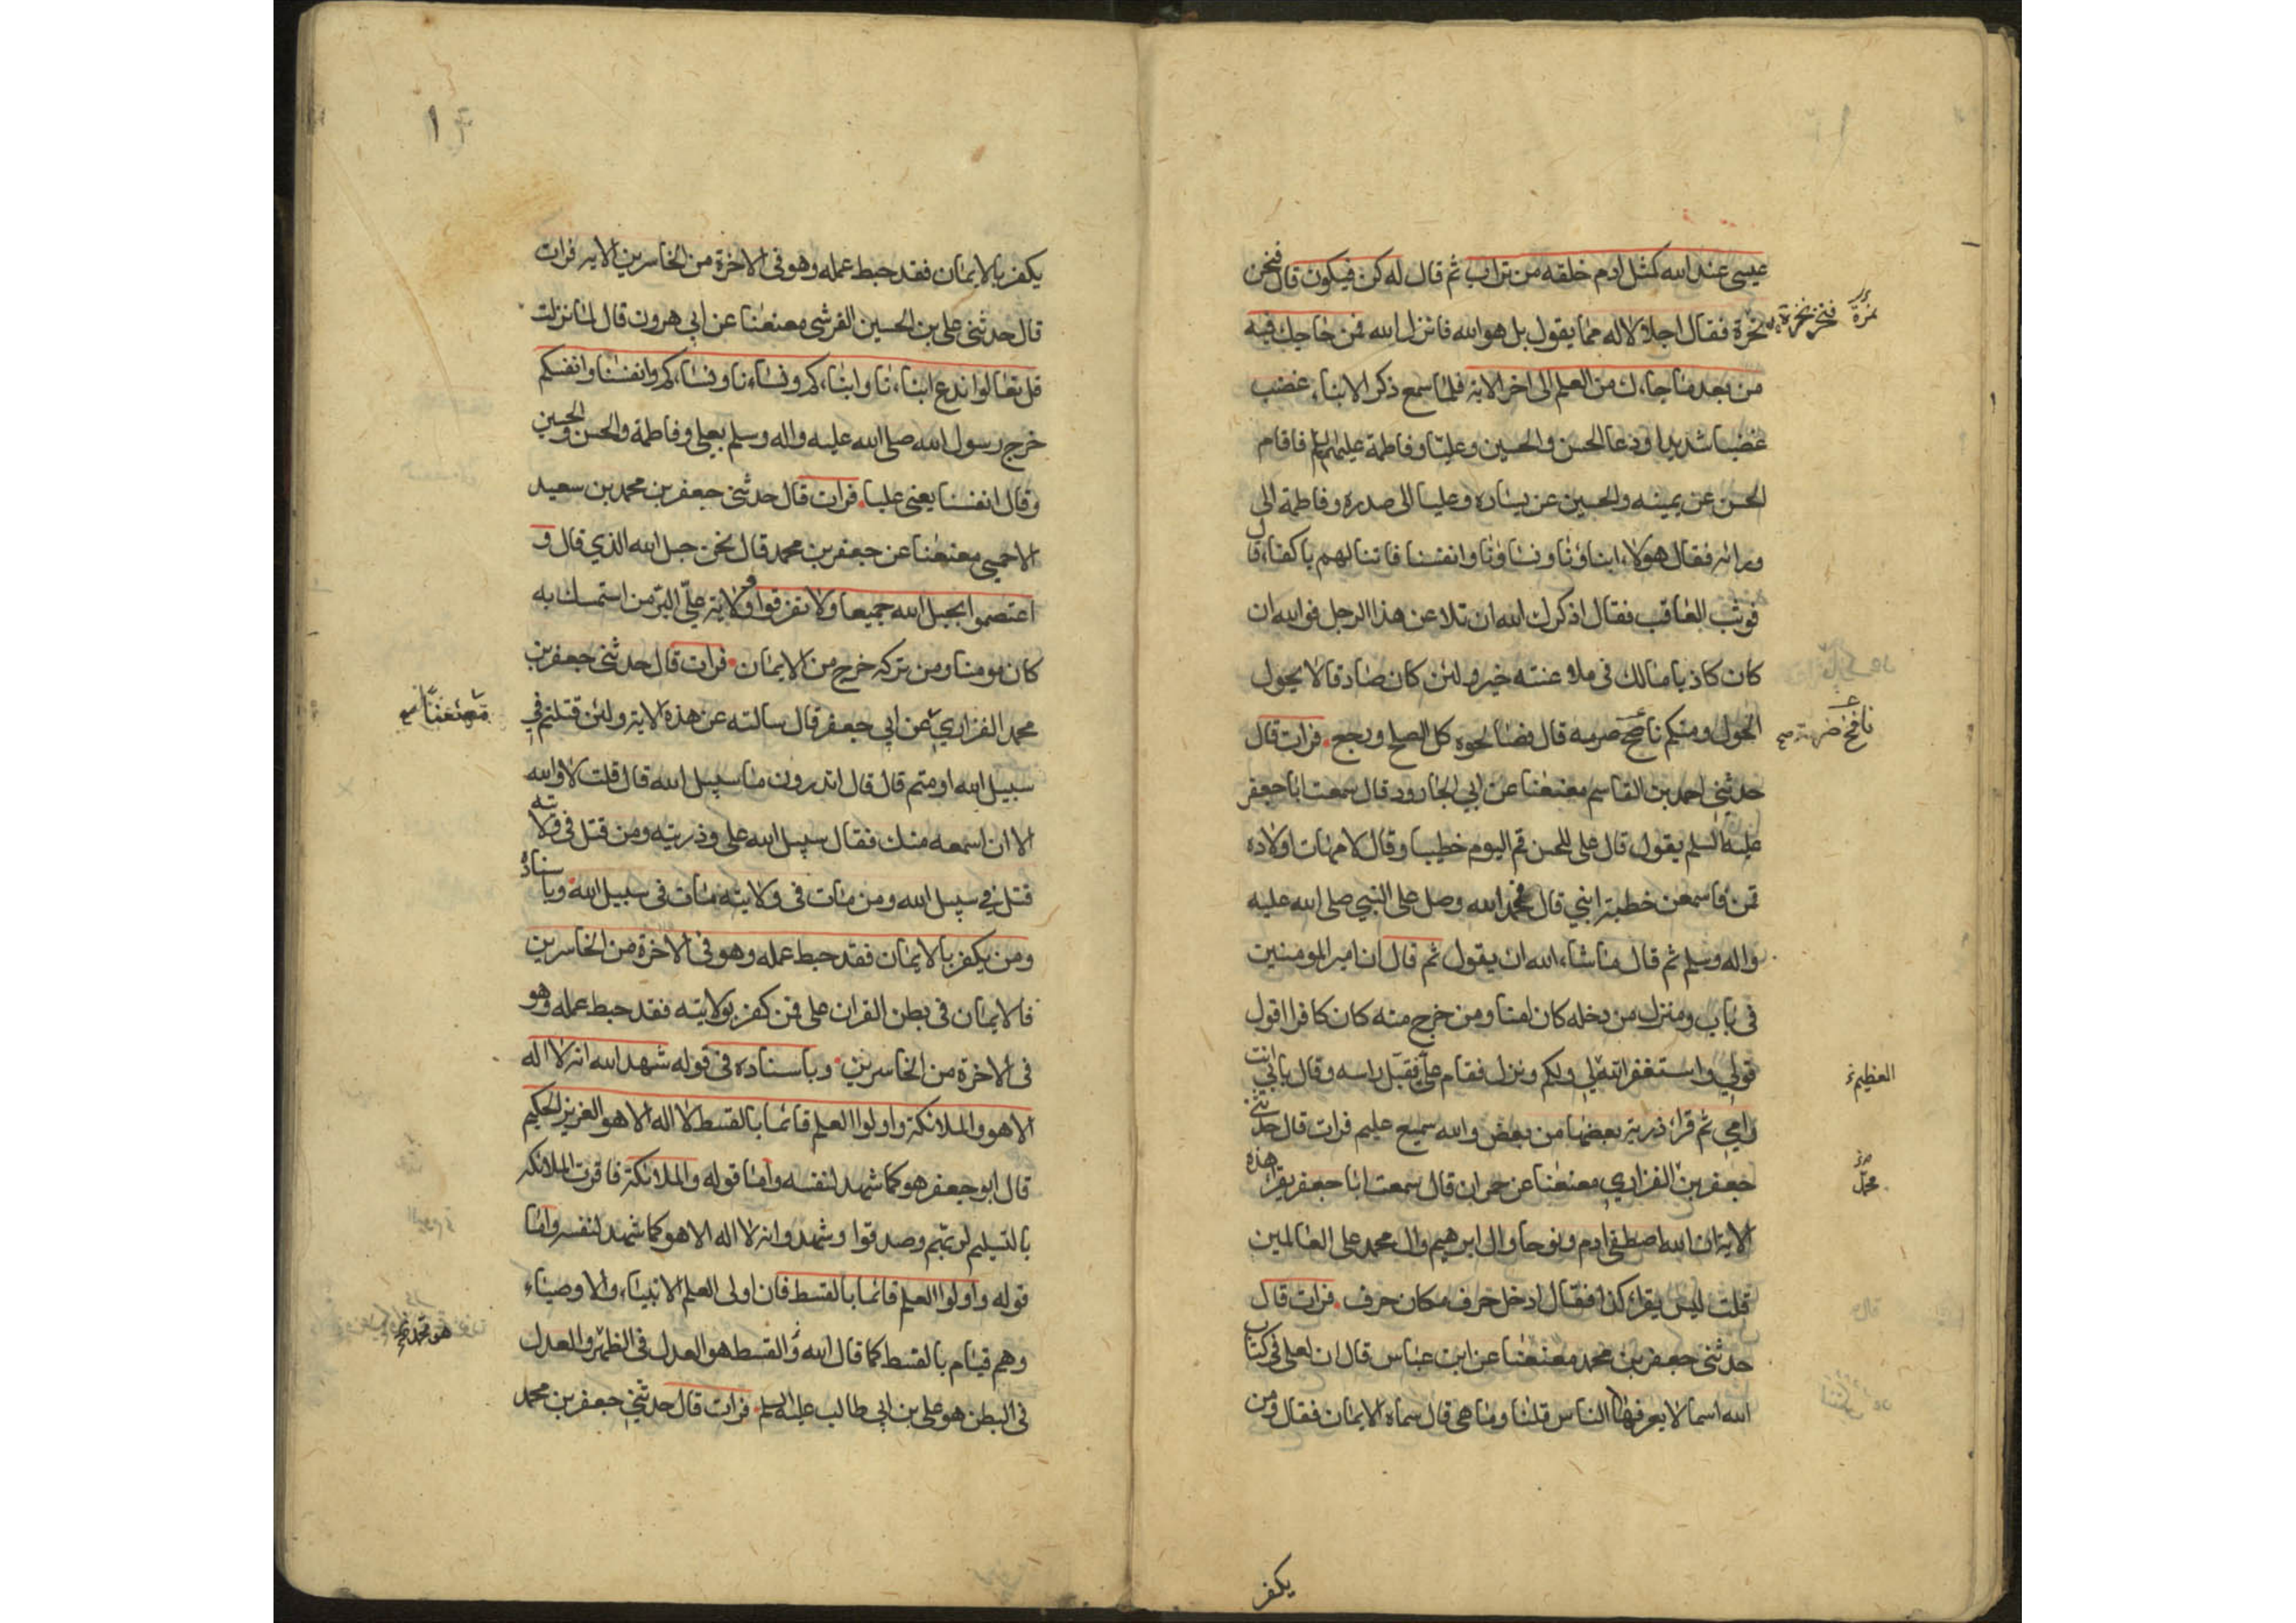 عيسى عند الله كمثل ادم خلقه من تراب ثم قال له كن فيكون قال فنخر
نخرة فقال اجلالا له مما يقول بل هو الله فانزل الله فمن حاجك فيه
من بعد ما جاءك من العلم الى اخر الاية فلما سمع ذكر الابناء غضب
غضبا شديدا ودعا الحسن والحسين وعليا وفاطمة عليهم السلم فاقام
الحسن عن يمينه والحسين عن يساره وعليا الى صدره وفاطمة الى
ورائه فقال هولاء ابناؤنا ونساؤنا وانفسنا فاتنا لهم باكفاء قال
فوثب العاقب فقال اذكرك الله ان تلاعن هذا الرجل فوالله ان
كان كاذبا مالك في ملاعنته خير ولئن كان صادقا لا يحول
الحول ومنكم نافخ صرمه قال فصالحوه كل الصلح ورجع فرات قال
حدثني احمد بن القاسم معنعنا عن ابي الجارود قال سمعت ابا جعفر
عليه السلم يقول قال علي للحسن قم اليوم خطيبا وقال لامهات اولاده
قمن فاسمعن خطبة ابني قال فحمد الله وصل على النبي صلى الله عليه
واله وسلم ثم قال ما شاء الله ان يقول ثم قال ان امير المومنين
في باب ومنزل من دخله كان امنا ومن خرج منه كان كافرا اقول
قولي واستغفر الله لي ولكم ونزل فقام علي فقبل راسه وقال بابي انت
وامي ثم قرا ذرية بعضها من بعض والله سميع عليم فرات قال حدثني
جعفر بن الفزاري معنعنا عن حمران قال سمعت ابا جعفر يقرا هذه
الاية ان الله اصطفى ادم ونوحا وال ابرهيم وال محمد على العالمين
قلت ليس يقرا كذا فقال ادخل حرف مكان حرف فرات قال
حدثني جعفر بن محمد معنعنا عن ابن عباس قال ان لعلي في كتاب
الله اسما لا يعرفها الناس قلنا وما هي قال سماه الايمان فقال ومن
نخرة
فنخر نخرة
نافخ ضرمة صح
العظيم
محمد
يكفر
١
يكفر بالايمان فقد حبط عمله وهو في الاخرة من الخاسرين الاية فرات
قال حدثني علي بن الحسين القرشي معنعنا عن ابي هرون قال لما نزلت
قل تعالوا ندع ابناءنا وابناءكم ونساءنا ونساءكم وانفسنا وانفسكم
خرج رسول الله صلى الله عليه واله وسلم بعلي وفاطمة والحسن والحسين
وقال انفسنا يعني عليا فرات قال حدثني جعفر بن محمد بن سعيد
الاحمسي معنعنا عن جعفر بن محمد قال نحن حبل الله الذي قال و
اعتصموا بحبل الله جميعا ولا تفرقوا وولاية علي البر من استمسك به
كان مومنا ومن تركه خرج من الايمان فرات قال حدثني جعفر بن
محمد الفزاري عن ابي جعفر قال سالته عن هذه الاية ولئن قتلتم في
سبيل الله او متم قال قال اتدرون ما سبيل الله قال قلت لا والله
الا ان اسمعه منك فقال سبيل الله علي وذريته ومن قتل في ولايته
قتل في سبيل الله ومن مات في ولايته مات في سبيل الله وباسناده
ومن يكفر بالايمان فقد حبط عمله وهو في الاخرة من الخاسرين
فالايمان في بطن القران علي فمن كفر بولايته فقد حبط عمله وهو
في الاخرة من الخاسرين وباسناده في قوله شهد الله انه لا اله
الا هو والملائكة واولوا العلم قائما بالقسط لا اله الا هو العزيز الحكيم
قال ابو جعفر هو كما شهد لنفسه واما قوله والملائكة فاقرت الملائكة
بالتسليم لربهم وصدقوا وشهدوا انه لا اله الا هو كما شهد لنفسه واما
قوله واولوا العلم قائما بالقسط فان اولى العلم الانبياء والاوصياء
وهم قيام بالقسط كما قال الله والقسط هو العدل في الظهر والعدل
في البطن هو علي بن ابي طالب عليه السلم فرات قال حدثني جعفر بن محمد
معنعنا
هو محمد